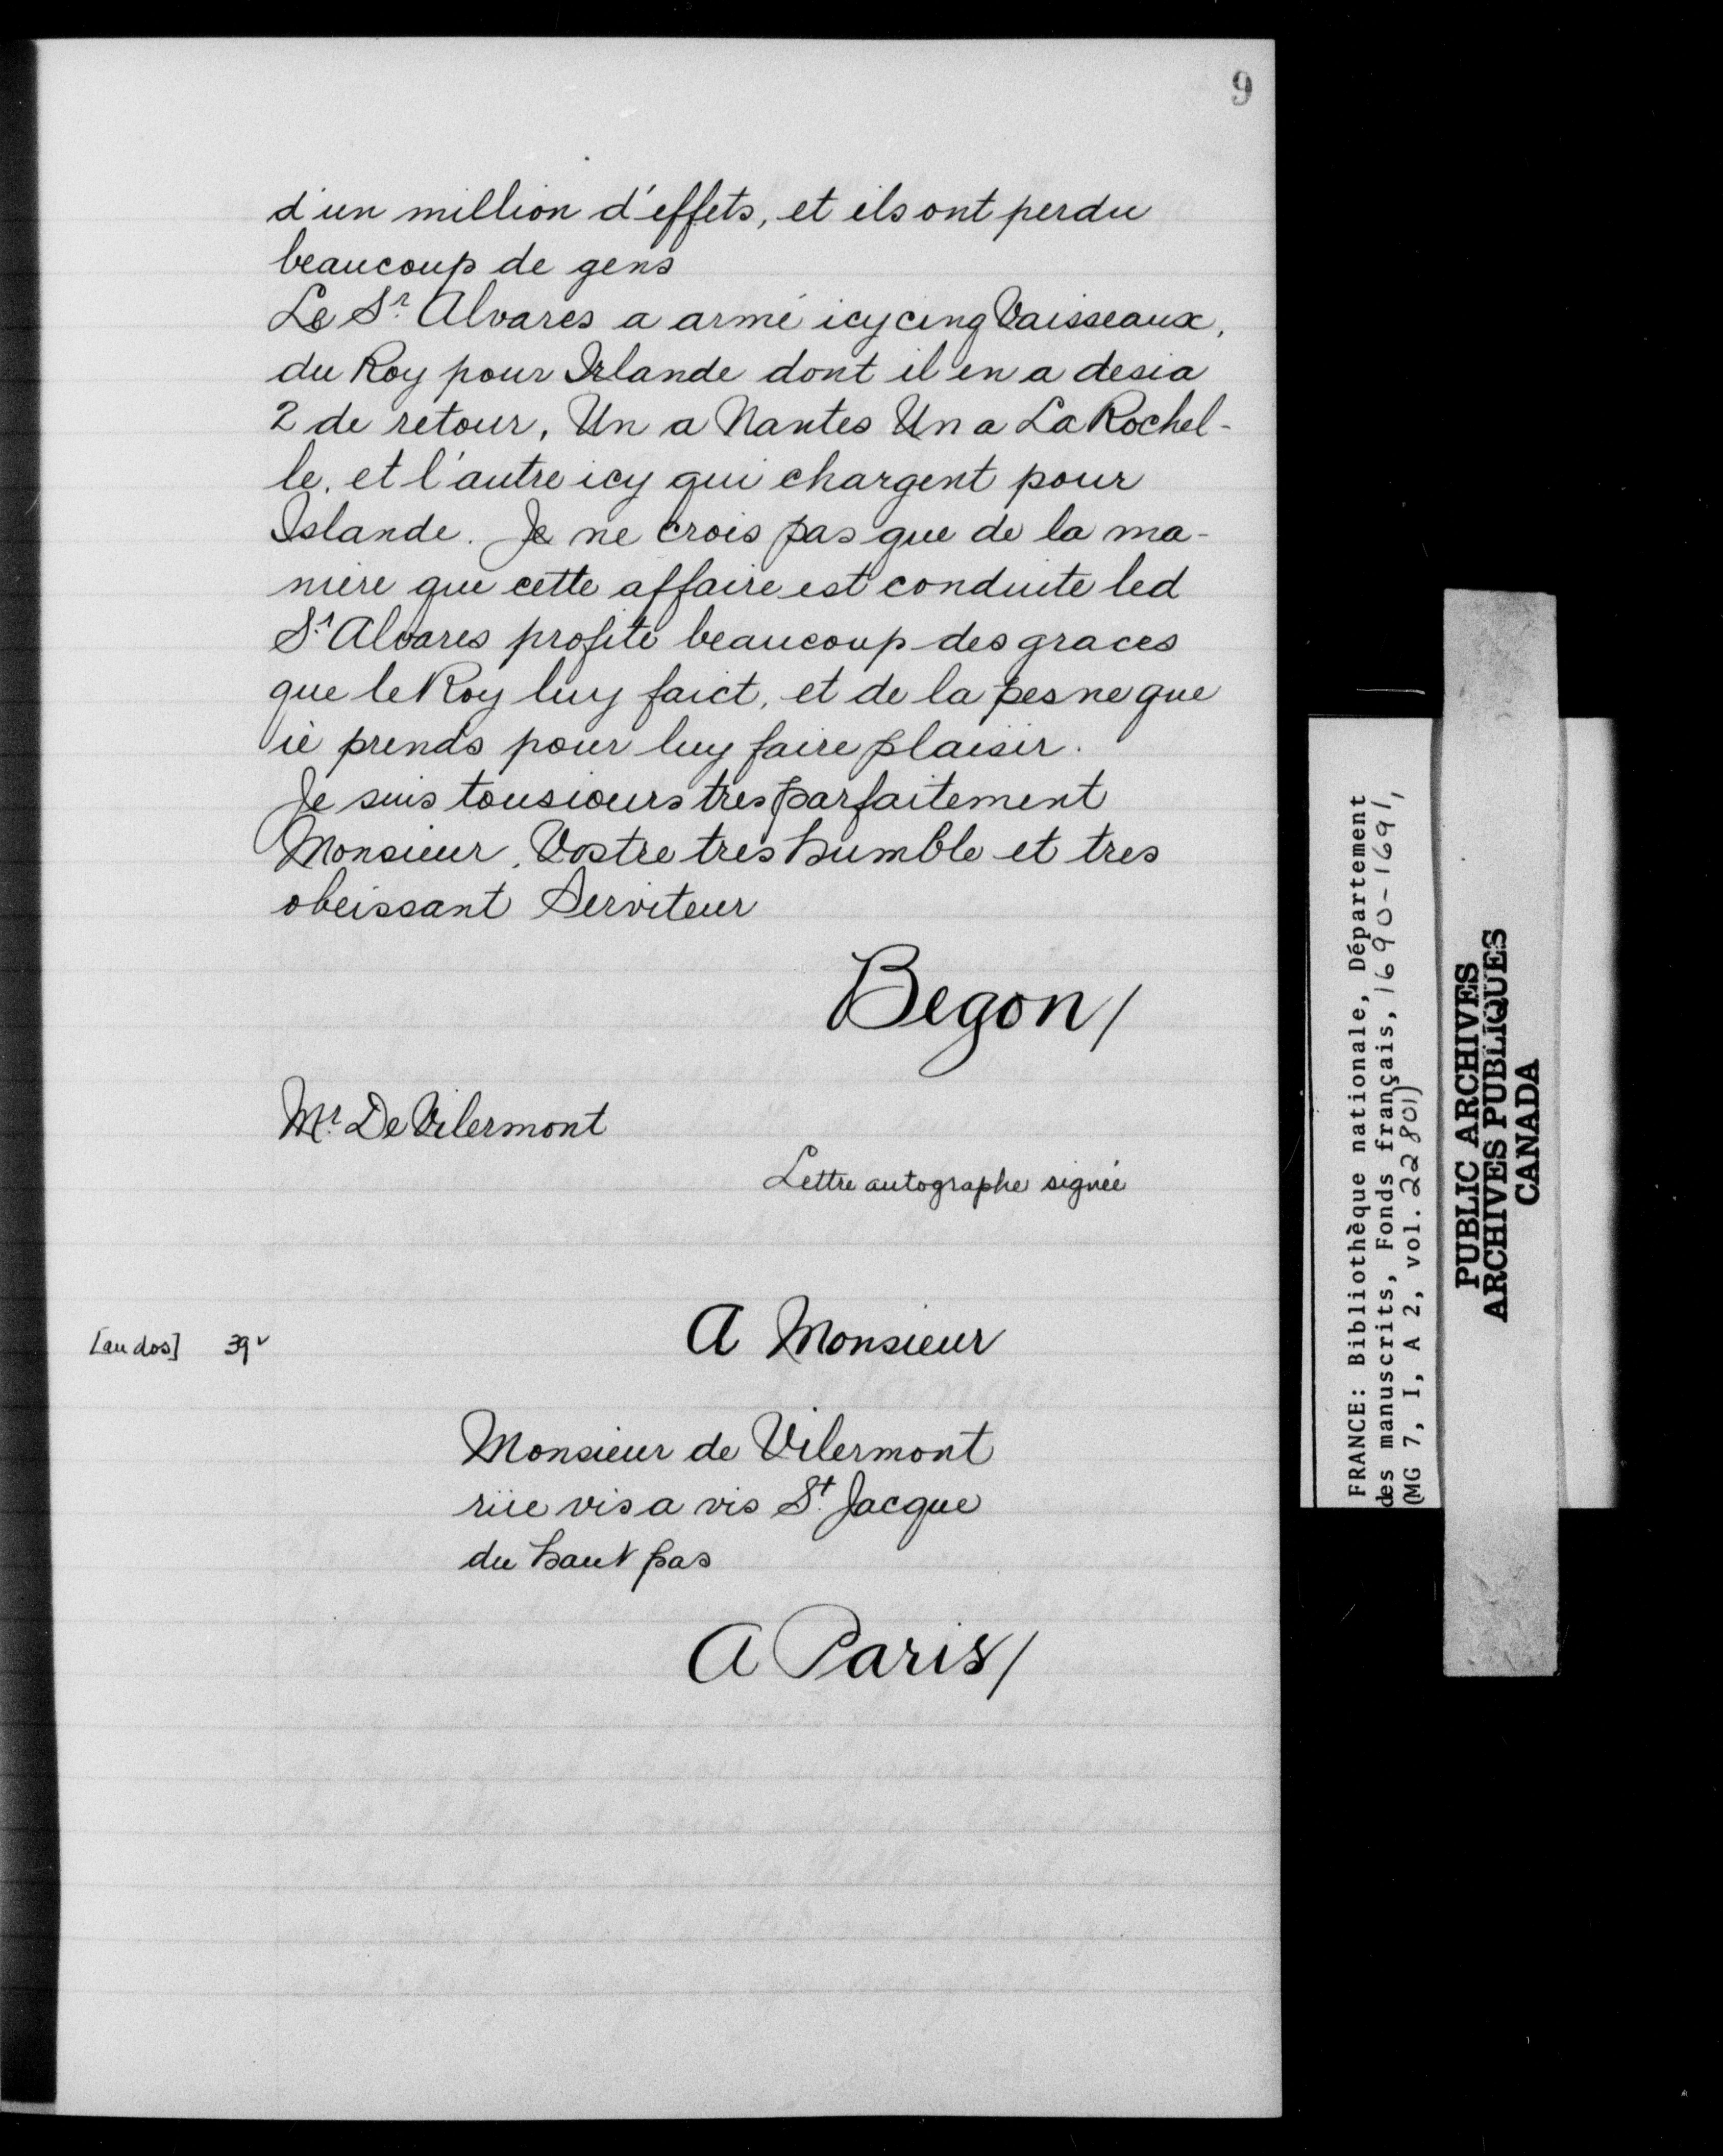 9
d'un million d'effets, et ils ont perdu
beaucoup de gens
Le Sr. Alvares a armé icy cinq Vaisseaux,
du Roy pour Irlande dont il en a desia
2 de retour, Un a Nantes Un a La Rochel-
le, et l'autre icy qui chargent pour
Islande. Je ne crois pas que de la ma-
niere que cette affaire est conduite led
Sr. Alvares profite beaucoup des graces
que le Roy luy faict, et de la pesne que
ie prends pour luy faire plaisir.
Je suis tousiours tres parfaitement
Monsieur, Vostre tres humble et tres
obeissant Serviteur
Begon/
Mr. De Vilermont
Lettre autographe signée
[au dos] 39v
A Monsieur
Monsieur de Vilermont
rüe vis a vis St. Jacque
du haut pas
A Paris/
FRANCE: Bibliothèque nationale, Département
des manuscrits, Fonds français, 1690-1691,
(MG 7, I, A 2, vol. 22801)
PUBLIC ARCHIVES
ARCHIVES PUBLIQUES
CANADA